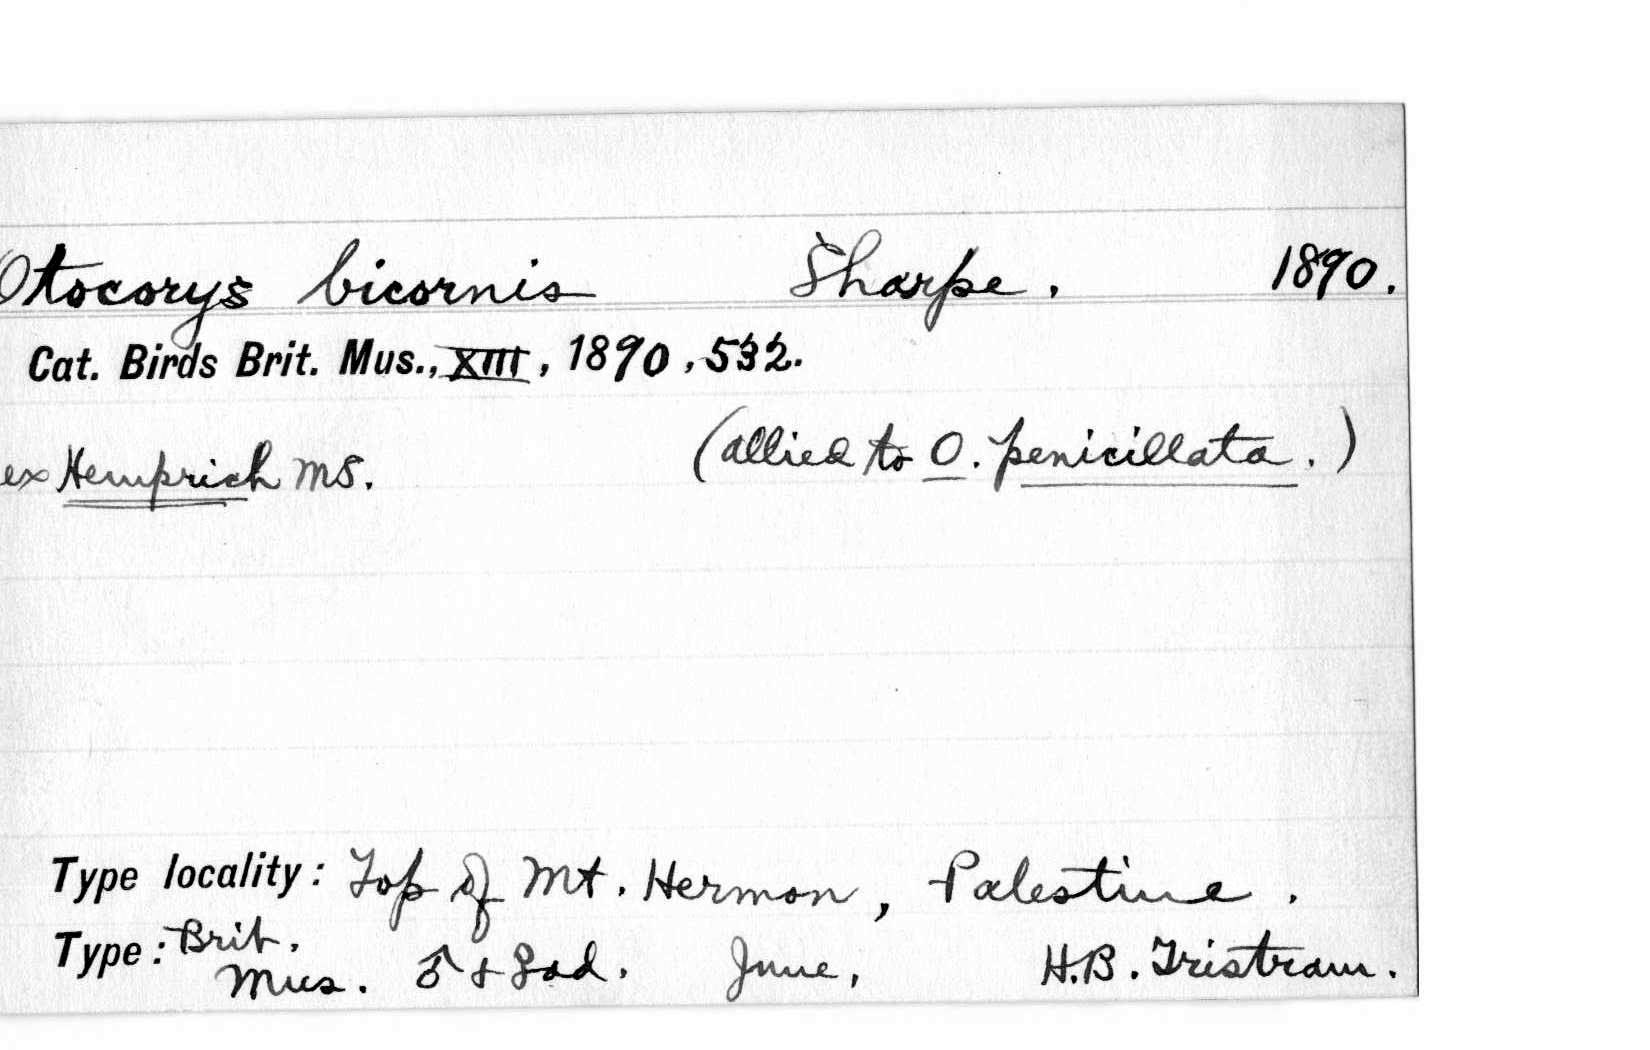 Otocorys bicornis Sharpe. 1890.
Cat. Birds Brit. Mus., XIII, 1890, 532.
ex Hemprich MS. (allied to O. penicillata.)
Type locality: Top of Mt. Hermon, Palestine.
Type: Brit. Mus. ♂ + ♀ ad. June, H.B. Tristram.